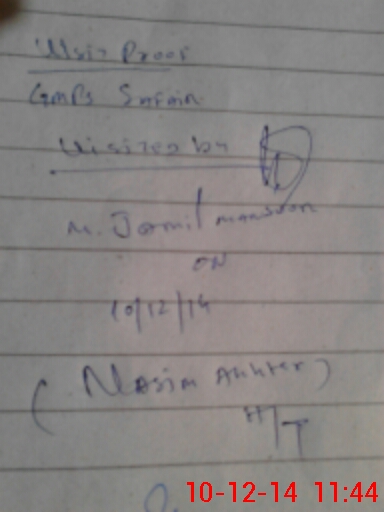 Visit Proof
GMPS
Visited by
M. Jamil
ON
10/12/14
(Nasim Akhter)
H/T
10-12-14 11:44